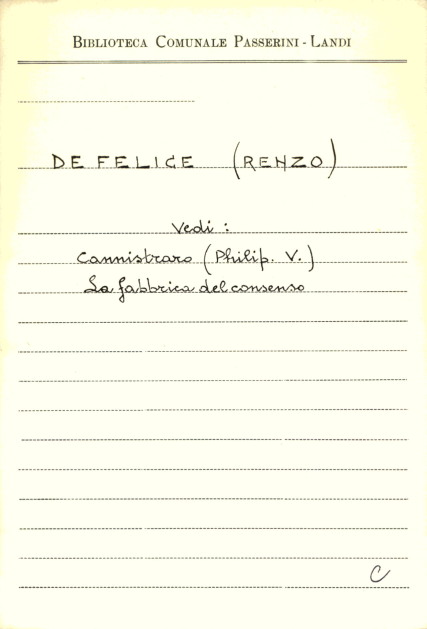 BIBLIOTECA COMUNALE PASSERINI - LANDI
DE FELICE (RENZO)
Vedi :
Cannistraro (Philip. V.)
La fabbrica del consenso
C